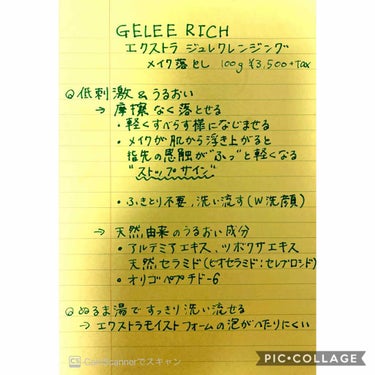 GELEE RICH
エクストラ ジュレクレンジング
メイク落とし 100g ¥3,500+Tax
低刺激&うるおい
→ 摩擦なく落とせる
・軽くすべらす様になじませる
・メイクが肌から浮き上がると
指先の感触が"ふっ"と軽くなる
"ストップサイン"
・ふきとり不要,洗い流す(W洗顔)
→ 天然由来のうるおい成分
・アルテミアエキス、ツボクサエキス
天然セラミド(ビオセラミド:セレブロシド)
・オリゴペプチド-6
ぬるま湯ですっきり洗い流せる
→ エクストラモイストフォームの泡がへたりにくい
CS CamScannerでスキャン
PIC•COLLAGE